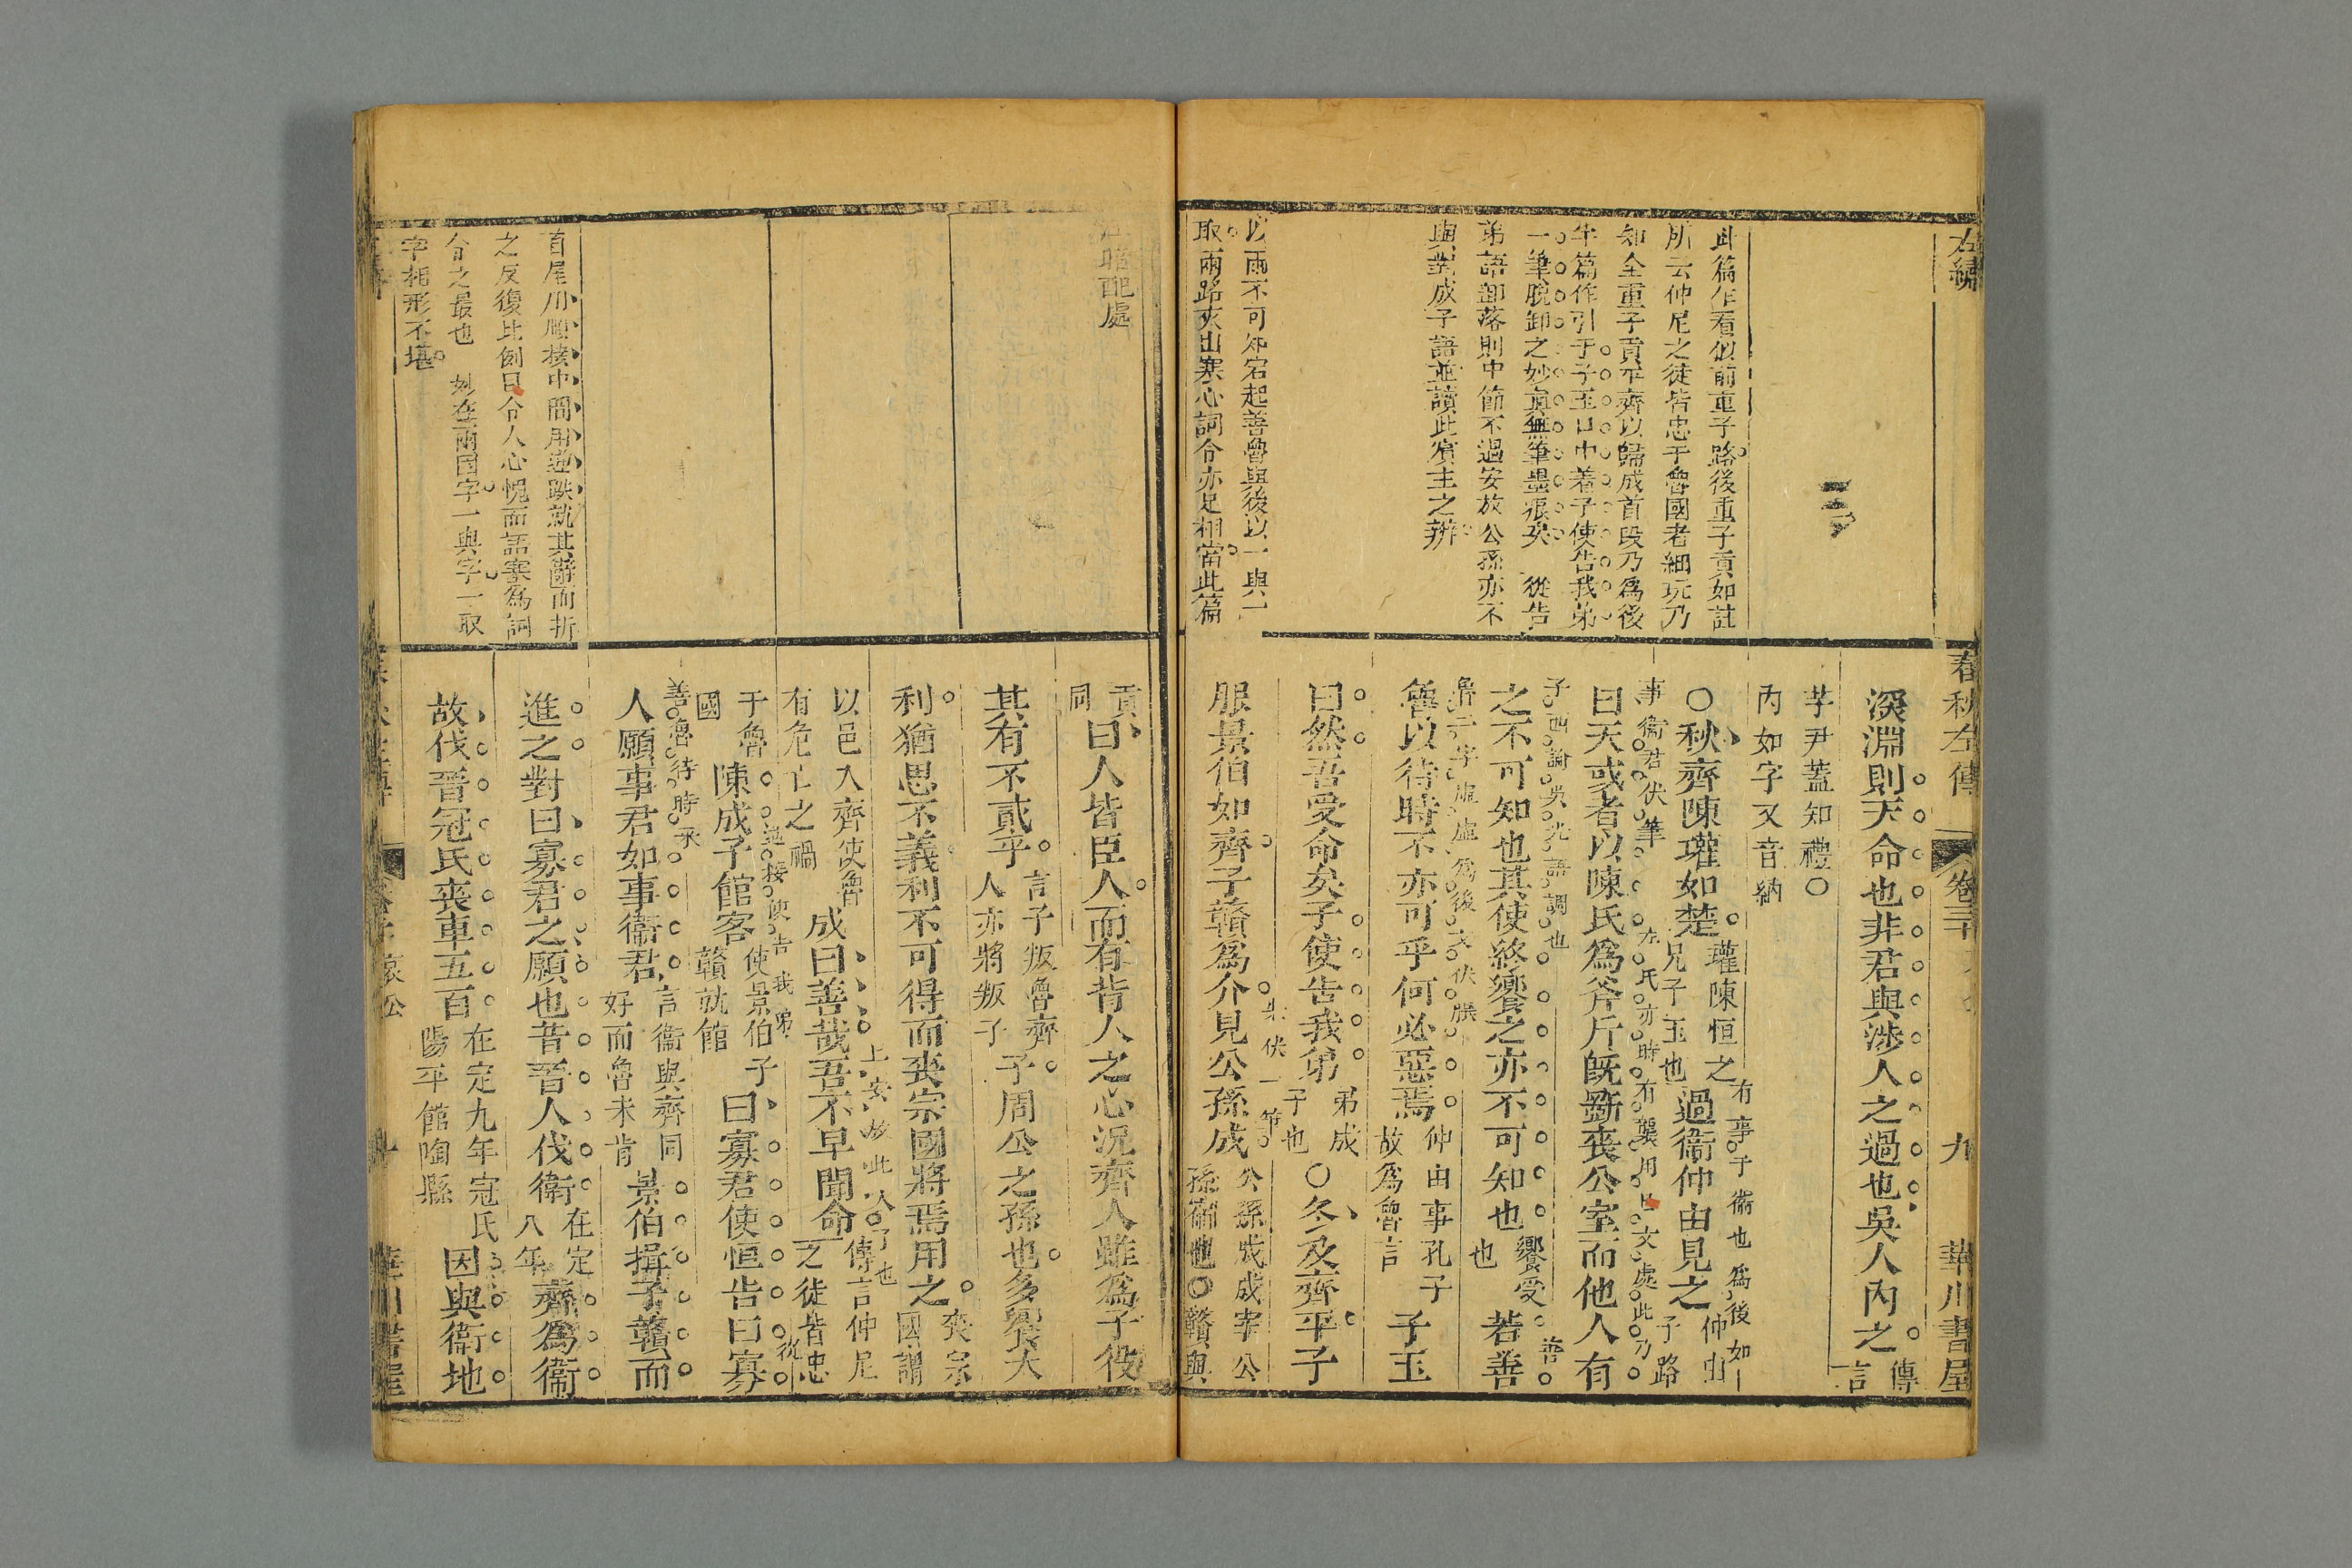 左繡
春秋左傳
卷三十
九
華川書屋
此篇乍看似前重子路後重子貢如註
所云仲尼之徒皆忠于魯國者細玩乃
知全重子貢平齊以歸成首段乃為後
半篇作引于子玉口中着子使告我弟
一筆脫卸之妙真無筆墨痕矣 從告
弟語卸落則中節不過安放公孫亦不
與對成子語並讀此賓主之辨
以兩不可知宕起善魯與後以一與一
取兩路夾出寒心詞令亦足相當此篇
深淵則天命也非君與涉人之過也吳人內之
傳言
芋尹蓋知禮○
內如字又音納
○秋齊陳瓘如楚
瓘陳恒之
兄子玉也
過衛仲由見之
仲由
子路
有事于衛也為後如
事衛君伏筆
曰天或者以陳氏為斧斤既斲喪公室而他人有
左氏亦時有襲用已文處此乃
子西論吳光語調也
之不可知也其使終饗之亦不可知也
饗受
也
若善
善
魯二字虛虛為後文伏脈
魯以待時不亦可乎何必惡焉
仲由事孔子
故為魯言
子玉
曰然吾受命矣子使告我弟
弟成
子也
○冬及齊平子
伏一筆
服景伯如齊子贛為介見公孫成
公孫成成宰公
孫宿也○贛與
貢
同
曰人皆臣人而有背人之心況齊人雖為子役
其有不貳乎
言子叛魯齊
人亦將叛子
子周公之孫也多饗大
利猶思不義利不可得而喪宗國將焉用之
喪宗
國謂
以邑入齊使魯
有危亡之禍
成曰善哉吾不早聞命
上安放此人了也
傳言仲尼
之徒皆忠
于魯
國
陳成子館客
使景伯子
贛就館
曰寡君使恒告曰寡
從
逆接使告我弟
善魯待時來
人願事君如事衛君
言衛與齊同
好而魯未肯
景伯揖子贛而
進之對曰寡君之願也昔晉人伐衛
在定
八年
齊為衛
故伐晉冠氏喪車五百
在定九年冠氏
陽平館陶縣
因與衛地
暗配處
首尾用順接中間用逆跌就其辭而折
之反復比例曰令人心愧而語塞為詞
令之最也 妙在兩因字一與字一取
字相形不堪
哀公
十
華川書屋